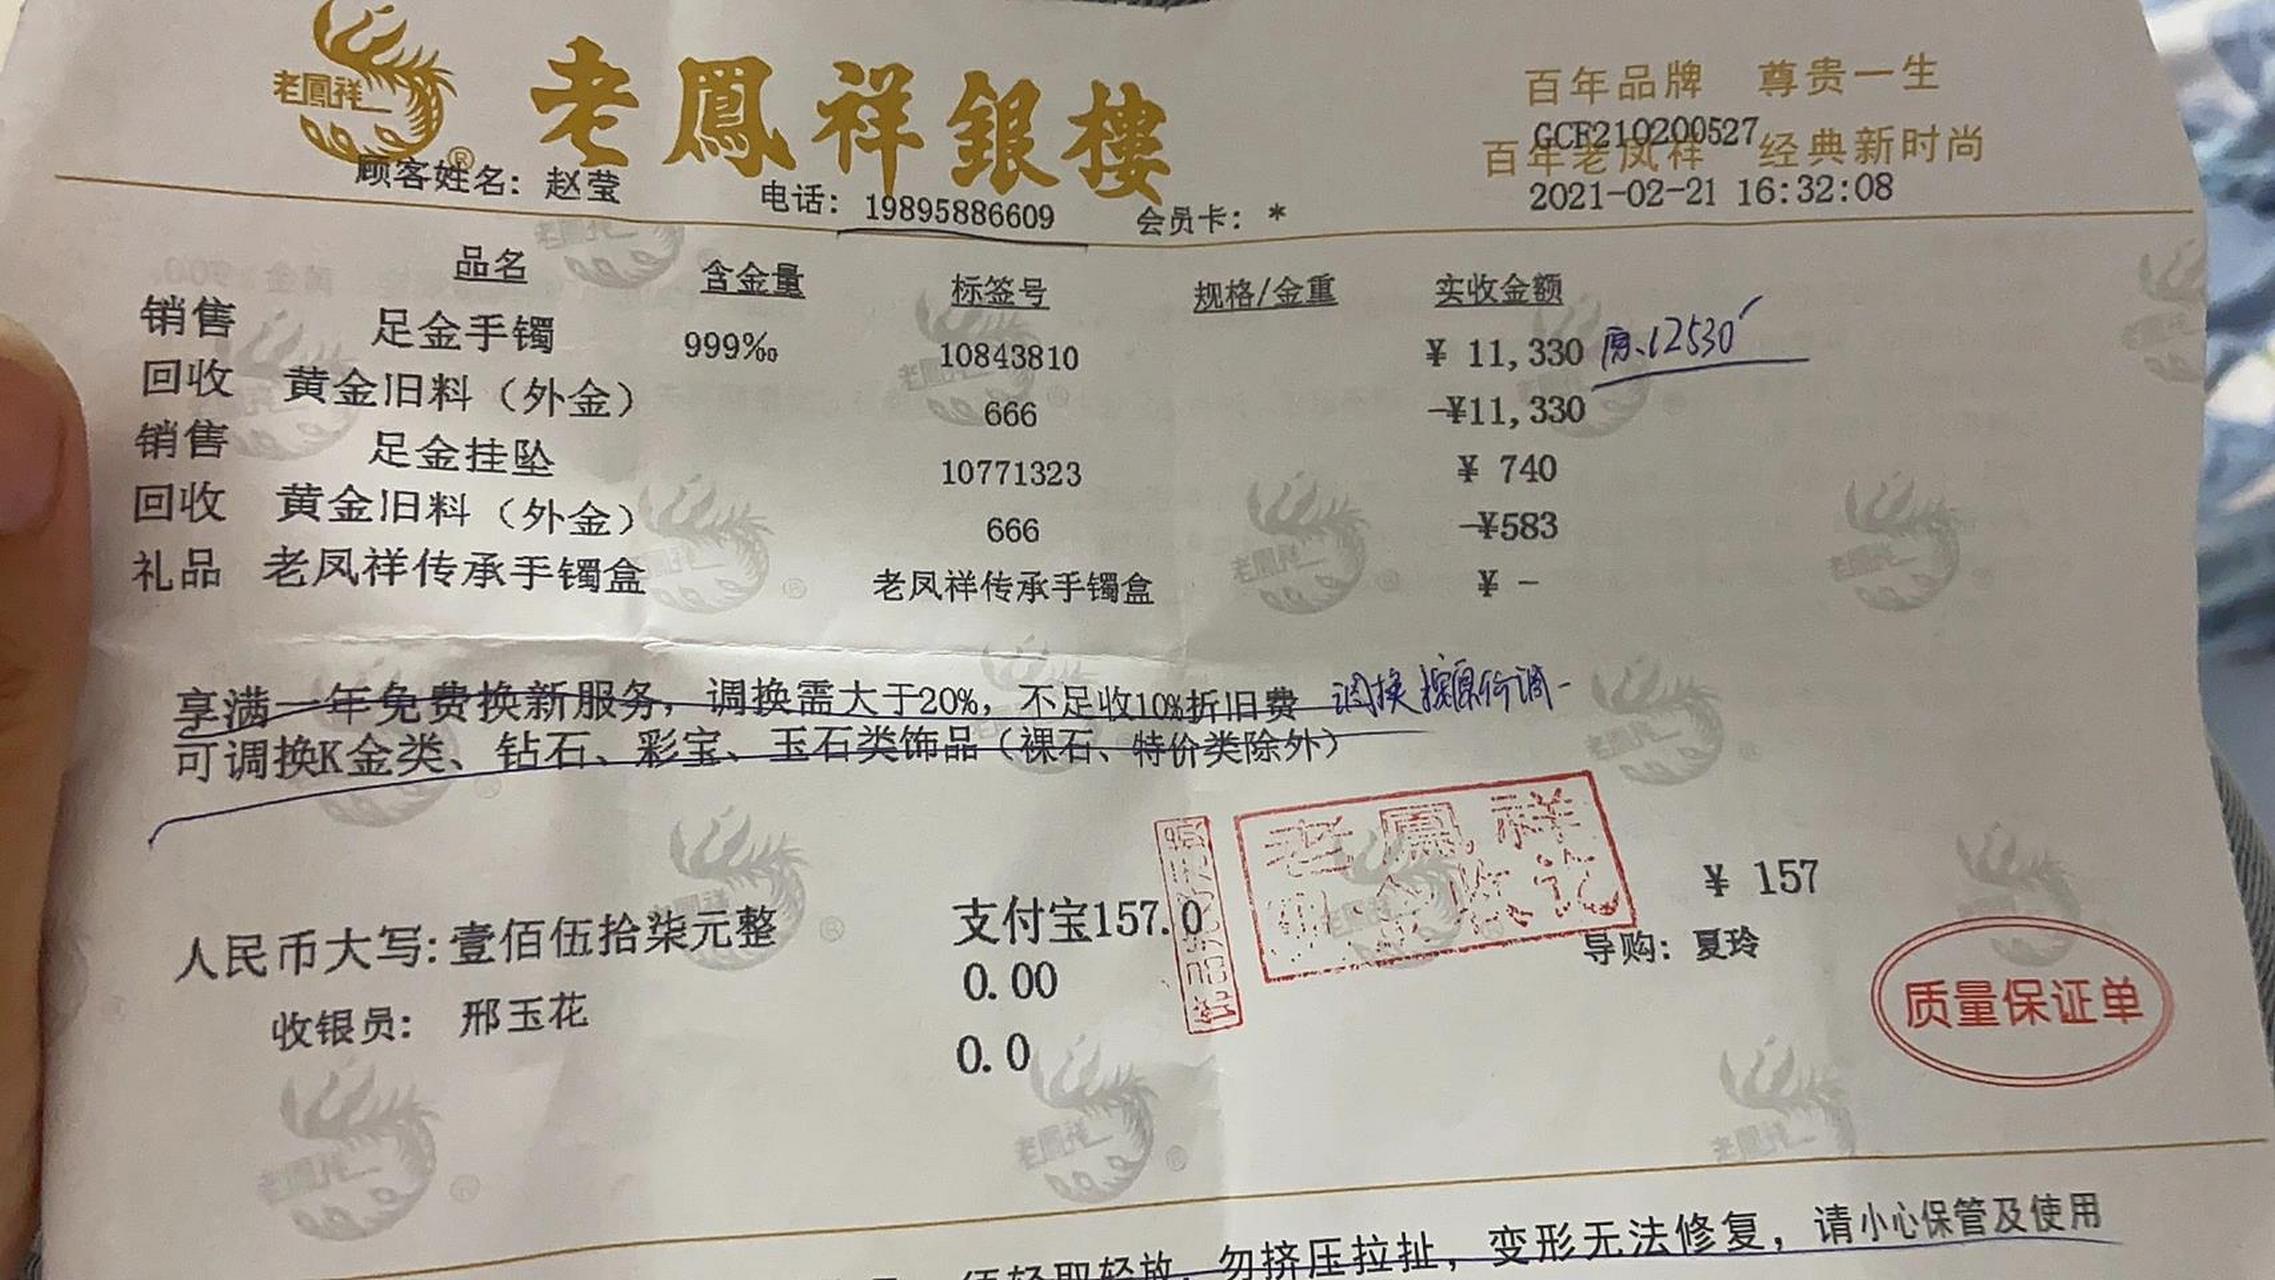 老鳳祥
老鳳祥銀樓
百年品牌 尊贵一生
GCF210200527
百年老凤祥 经典新时尚
2021-02-21 16:32:08
顾客姓名: 赵莹 电话: 19895886609 会员卡: *
品名 含金量 标签号 规格/金重 实收金额
销售 足金手镯 999‰ 10843810 ¥ 11,330 原.12530
回收 黄金旧料（外金） 666 -¥11,330
销售 足金挂坠 10771323 ¥ 740
回收 黄金旧料（外金） 666 -¥583
礼品 老凤祥传承手镯盒 老凤祥传承手镯盒 ¥ -
享满一年免费换新服务, 调换需大于20%, 不足收10%折旧费 调换按原价调
可调换K金类、钻石、彩宝、玉石类饰品（裸石、特价类除外）
老鳳祥
¥ 157
人民币大写:壹佰伍拾柒元整 支付宝157.0
导购: 夏玲
0.00
收银员: 邢玉花
0.0
质量保证单
轻取轻放, 勿挤压拉扯, 变形无法修复, 请小心保管及使用